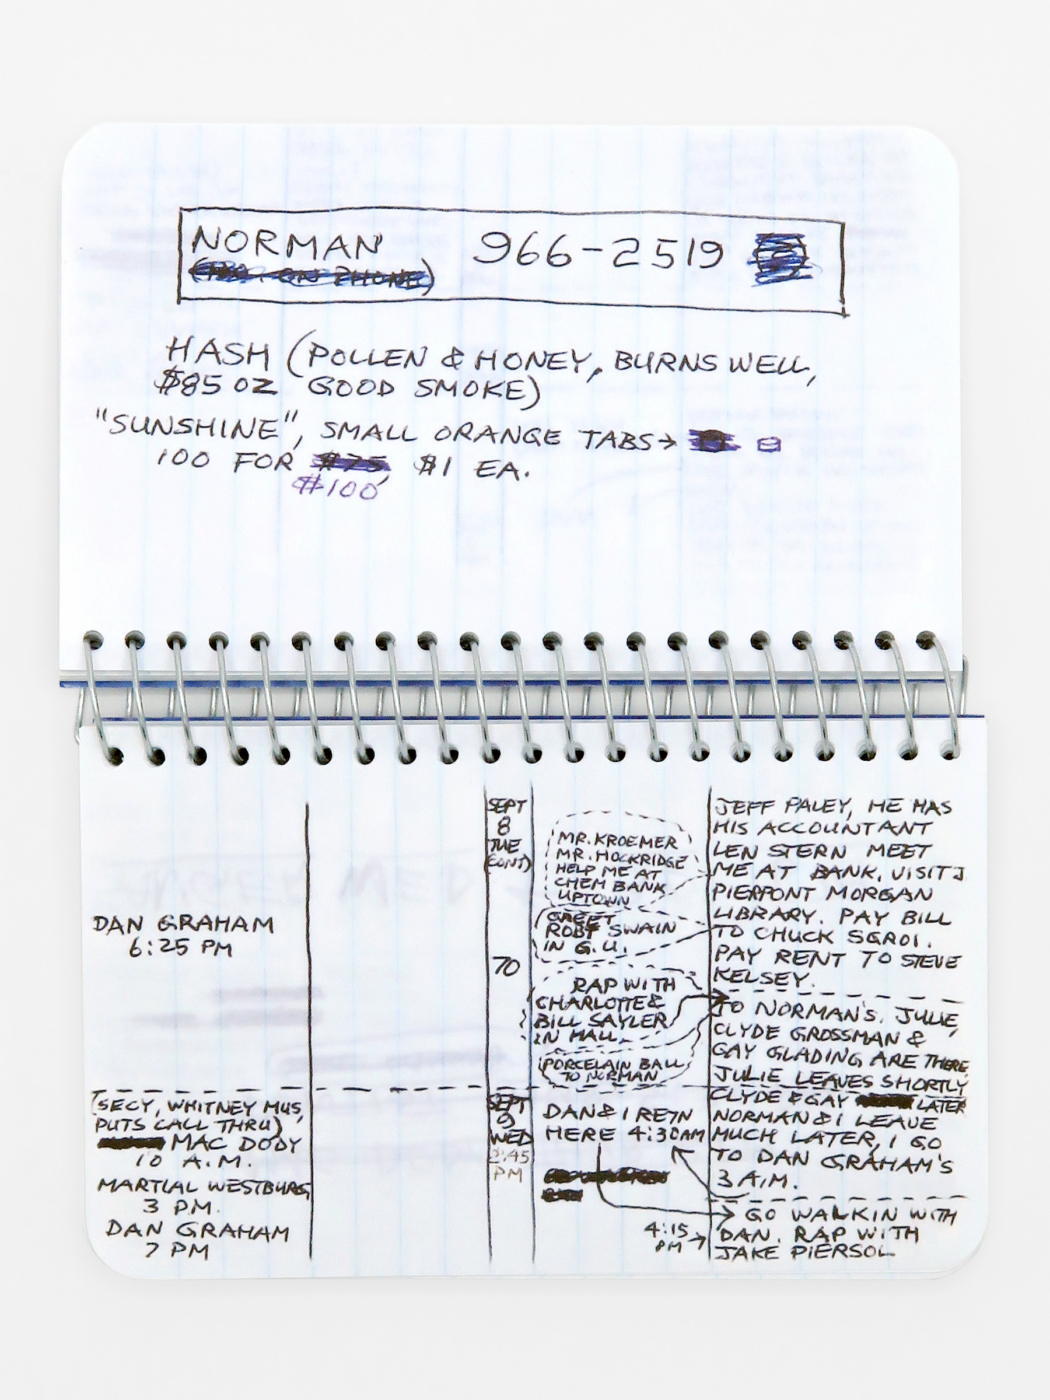 NORMAN 966-2519
ON PHONE)
HASH (POLLEN & HONEY, BURNS WELL,
$85 OZ GOOD SMOKE)
"SUNSHINE", SMALL ORANGE TABS→
100 FOR $75, $1 EA.
$100
DAN GRAHAM
6:25 PM
(SECY, WHITNEY MUS,
PUTS CALL THRU)
MAC DODY
10 A.M.
MARTIAL WESTBURG
3 P.M.
DAN GRAHAM
7 PM
SEPT
8
TUE
(CONT)
70
SEPT
9
WED
2:45
PM
MR. KROEMER
MR. HOCKRIDGE
HELP ME AT
CHEM BANK
UPTOWN
GREET
ROBT SWAIN
IN G.U.
RAP WITH
CHARLOTTE &
BILL SAYLER
IN HALL
PORCELAIN BALL
TO NORMAN
DAN & I RETN
HERE 4:30AM
4:15
PM→
JEFF PALEY, HE HAS
HIS ACCOUNTANT
LEN STERN MEET
ME AT BANK. VISIT J
PIERPONT MORGAN
LIBRARY. PAY BILL
TO CHUCK SGROI.
PAY RENT TO STEVE
KELSEY.
TO NORMAN'S. JULIE,
CLYDE GROSSMAN &
GAY GLADING ARE THERE,
JULIE LEAVES SHORTLY
CLYDE & GAY LATER
NORMAN & I LEAVE
MUCH LATER, I GO
TO DAN GRAHAM'S
3 A.M.
GO WALKIN WITH
DAN. RAP WITH
JAKE PIERSOL